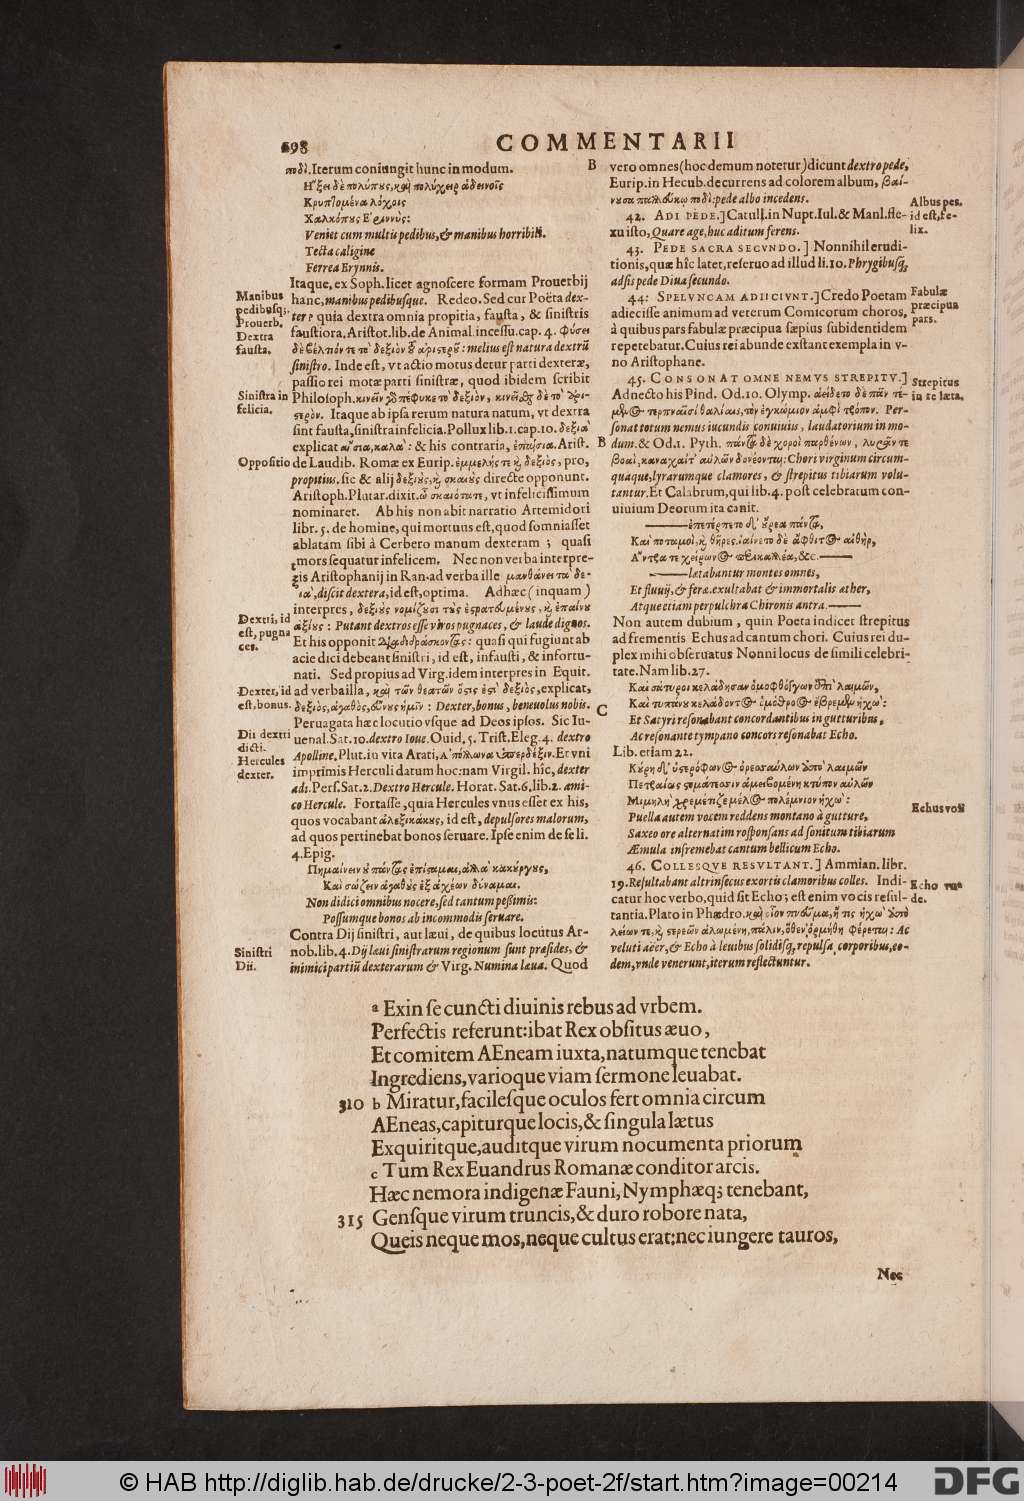 698 COMMENTARII
ποδί. Iterum coniungit hunc in modum.
Ἥξει δὲ πολύπους, καὶ πολύχειρ ἁ δεινοῖς
Κρυπτομένα λόχοις
Χαλκόπους Ἐριννύς:
Veniet cum multis pedibus, & manibus horribili.
Tecta caligine
Ferrea Erynnis.
Itaque, ex Soph. licet agnoscere formam Prouerbij
hanc, manibus pedibusque. Redeo. Sed cur Poëta dex-
ter? quia dextra omnia propitia, fausta, & sinistris
faustiora. Aristot. lib. de Animal. incessu. cap. 4. Φύσει
δὲ βέλτιόν τε τὸ δεξιὸν τοῦ ἀριστεροῦ: melius est natura dextrũ
sinistro. Inde est, vt actio motus detur parti dexteræ,
passio rei motæ parti sinistræ, quod ibidem scribit
Philosoph. κινεῖν γὰρ πέφυκε τὸ δεξιὸν, κινεῖσθαι δὲ τὸ ἀρι-
στερὸν. Itaque ab ipsa rerum natura natum, vt dextra
sint fausta, sinistra infelicia. Pollux lib. 1. cap. 10. δεξιὰ
explicat αἴσια, καλὰ: & his contraria, ἐπαίσια. Arist.
de Laudib. Romæ ex Eurip. ἐμμελής τε καὶ δεξιός, pro,
propitius. sic & alij δεξιοὺς, καὶ σκαιοὺς directe opponunt.
Aristoph. Plutar. dixit. ὦ σκαιότατε, vt infelicissimum
nominaret. Ab his non abit narratio Artemidori
libr. 5. de homine, qui mortuus est, quod somniasset
ablatam sibi à Cerbero manum dexteram; quasi
mors sequatur infelicem. Nec non verba interpre-
tis Aristophanij in Ran. ad verba ille μανθάνει τὰ δε-
ξιὰ, discit dextera, id est, optima. Adhæc (inquam)
interpres, δεξιοὺς νομίζουσι τοὺς ἐς ρατουμένους, καὶ ἐπαίνου
ἀξίους: Putant dextros esse viros pugnaces, & laude dignos.
Et his opponit διαδιδράσκοντας: quasi qui fugiunt ab
acie dici debeant sinistri, id est, infausti, & infortu-
nati. Sed propius ad Virg. idem interpres in Equit.
ad verba illa, καὶ τῶν θεατῶν ὅστις ἐστὶ δεξιὸς, explicat,
δεξιὸς, ἀγαθὸς, εὔνους ἡμῖν: Dexter, bonus, beneuolus nobis.
Peruagata hæc locutio vsque ad Deos ipsos. Sic Iu-
uenal. Sat. 10. dextro Ioue. Ouid. 5. Trist. Eleg. 4. dextro
Apolline. Plut. in vita Arati, Ἀπόλλωνα ὑπερδέξιν. Et vni
imprimis Herculi datum hoc: nam Virgil. hîc, dexter
adi. Pers. Sat. 2. Dextro Hercule. Horat. Sat. 6. lib. 2. ami-
co Hercule. Fortasse, quia Hercules vnus esset ex his,
quos vocabant ἀλεξικάκους, id est, depulsores malorum,
ad quos pertinebat bonos seruare. Ipse enim de se li.
4. Epig.
Πημαίνειν οὐ πάντας ἐπίσταμαι, ἀλλὰ κακούργους,
Καὶ σώζειν ἀγαθοὺς ἐξ ἀχέων δύναμαι.
Non didici omnibus nocere, sed tantum pessimis:
Possumque bonos ab incommodis seruare.
Contra Dij sinistri, aut læui, de quibus locutus Ar-
nob. lib. 4. Dij læui sinistrarum regionum sunt præsides, &
inimici partiũ dexterarum & Virg. Numina læua. Quod
Manibus
pedibusq;
Prouerb.
Dextra
fausta.
Sinistra in
felicia.
Oppositio
Dextri, id
est, pugna
ces.
Dexter, id
est, bonus.
Dii dextri
dicti.
Hercules
dexter.
Sinistri
Dii.
B vero omnes (hoc demum notetur) dicunt dextro pede,
Eurip. in Hecub. decurrens ad colorem album, βαί-
νουσα παλλεύκῳ ποδὶ: pede albo incedens.
42. ADI PEDE.] Catull. in Nupt. Iul. & Manl. fle-
xu isto, Quare age, huc aditum ferens.
43. PEDE SACRA SECVNDO.] Nonnihil erudi-
tionis, quæ hîc latet, reseruo ad illud li. 10. Phrygibusq;
adsis pede Diua secundo.
44: SPELVNCAM ADIICIVNT.] Credo Poetam
adiecisse animum ad veterum Comicorum choros,
à quibus pars fabulæ præcipua sæpius subidentidem
repetebatur. Cuius rei abunde exstant exempla in v-
no Aristophane.
45. CONSONAT OMNE NEMVS STREPITV.]
Adnecto his Pind. Od. 10. Olymp. ἀείδετο δὲ πᾶν τέ-
μενος τερπναῖσι θαλίαις, τὸν ἐγκώμιον ἀμφὶ τρόπον. Per-
sonat totum nemus iucundis conuiuiis, laudatorium in mo-
B dum. & Od. 1. Pyth. πάντα δὲ χοροὶ παρθένων, λυρᾶν τε
βοαὶ, καναχαί τ' αὐλῶν δονέονται: Chori virginum circum-
quaque, lyrarumque clamores, & strepitus tibiarum volu-
tantur. Et Calabrum, qui lib. 4. post celebratum con-
uiuium Deorum ita canit.
——ἐπετέρπετο δ' οὔρεα πάντα,
Καὶ ποταμοὶ, καὶ θῆρες. ἰαίνετο δὲ ἄφθιτος αἰθὴρ,
Ἄντρα τε χείρωνος περικαλλέα, &c.——
——lætabantur montes omnes,
Et fluuij, & feræ. exultabat & immortalis æther,
Atque etiam perpulchra Chironis antra.——
Non autem dubium, quin Poeta indicet strepitus
ad frementis Echus ad cantum chori. Cuius rei du-
plex mihi obseruatus Nonni locus de simili celebri-
tate. Nam lib. 27.
Καὶ σάτυροι κελάδησαν ὁμοφθόγγων ἀπὸ λαιμῶν,
C Καὶ τυπάνου κελάδοντος ὁμόθροος ἔβρεμεν ἠχώ:
Et Satyri resonabant concordantibus in gutturibus,
Ac resonante tympano concors resonabat Echo.
Lib. etiam 22.
Κούρη δ' ὑστερόφωνος ὀρεσσαύλων ὑπὸ λαιμῶν
Πετραίοις στομάτεσσιν ἀμειβομένη κτύπον αὐλῶν
Μιμηλὴ χρεμέτιζε μέλος πολέμνιον ἠχώ:
Puella autem vocem reddens montano à gutture,
Saxeo ore alternatim responsans ad sonitum tibiarum
Æmula infremebat cantum bellicum Echo.
46. COLLESQVE RESVLTANT.] Ammian. libr.
19. Resultabant altrinsecus exortis clamoribus colles. Indi-
catur hoc verbo, quid sit Echo; est enim vocis resul-
tantia. Plato in Phædro. καὶ οἷον πνεῦμα, ἤ τις ἠχὼ ἀπὸ
λείων τε, καὶ στερεῶν ἁλωμένη, πάλιν, ὅθεν ὁρμήθη φέρεται: Ac
veluti aër, & Echo à leuibus solidisq; repulsa corporibus, eo-
dem, vnde venerunt, iterum reflectuntur.
Albus pes.
id est, fe-
lix.
Fabulæ
præcipua
pars.
Strepitus
in re læta.
Echus vox
Echo
de.
a Exin se cuncti diuinis rebus ad vrbem.
Perfectis referunt: ibat Rex obsitus æuo,
Et comitem AEneam iuxta, natumque tenebat
Ingrediens, varioque viam sermone leuabat.
310 b Miratur, facilesque oculos fert omnia circum
AEneas, capiturque locis, & singula lætus
Exquiritque, auditque virum nocumenta priorum
c Tum Rex Euandrus Romanæ conditor arcis.
Hæc nemora indigenæ Fauni, Nymphæq; tenebant,
315 Gensque virum truncis, & duro robore nata,
Queis neque mos, neque cultus erat: nec iungere tauros,
Nec
© HAB http://diglib.hab.de/drucke/2-3-poet-2f/start.htm?image=00214
DFG